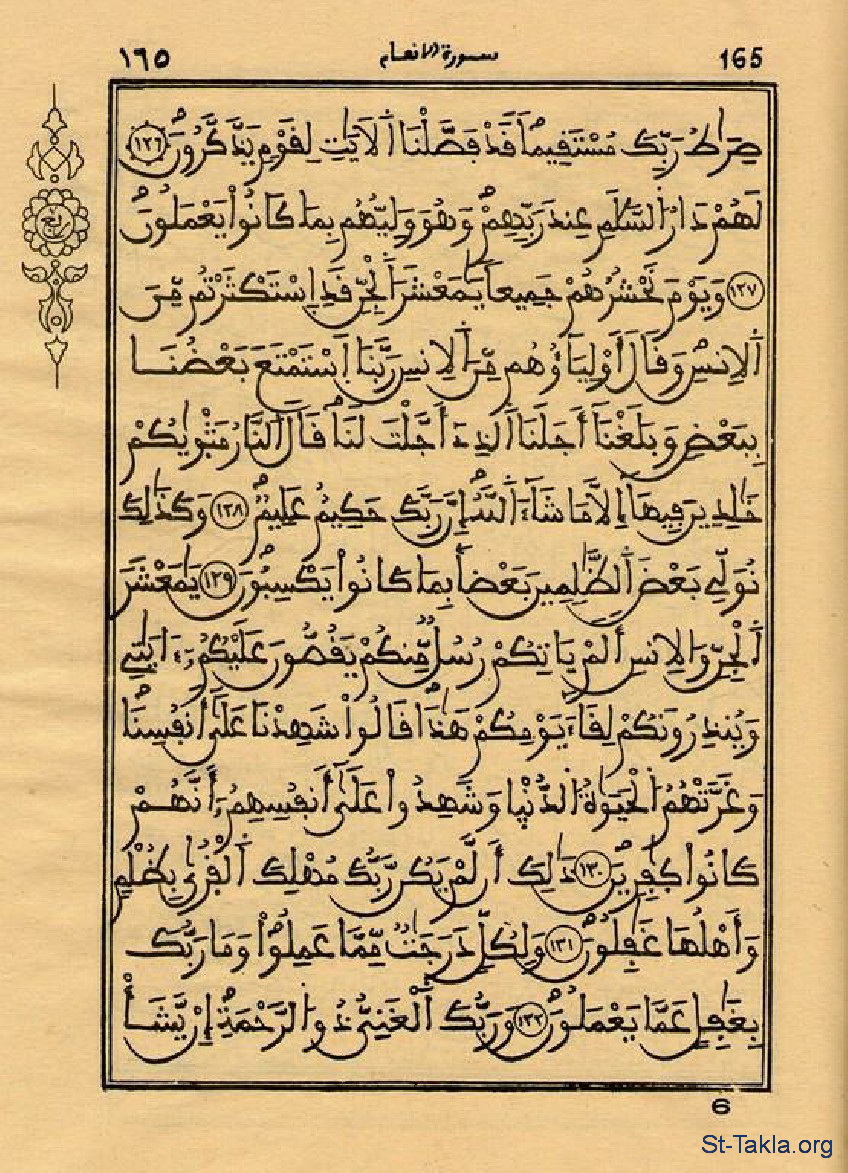 ١٦٥ سورة الانعام 165
صِرَٰطُ رَبِّكَ مُسْتَقِيماً قَدْ فَصَّلْنَا اَ۬لَايَٰتِ لِقَوْمٍ يَذَّكَّرُونَ ١٢٦
لَهُمْ دَارُ اُ۬لسَّلَٰمِ عِندَ رَبِّهِمْ وَهُوَ وَلِيُّهُم بِمَا كَانُواْ يَعْمَلُونَ
١٢٧ وَيَوْمَ نَحْشُرُهُمْ جَمِيعاً يَٰمَعْشَرَ اَ۬لْجِنِّ قَدِ اِ۪سْتَكْثَرْتُم مِّنَ
اَ۬لِانسِ وَقَالَ أَوْلِيَآؤُهُم مِّنَ اَ۬لِانسِ رَبَّنَا اَ۪سْتَمْتَعَ بَعْضُنَا
بِبَعْضٍ وَبَلَغْنَآ أَجَلَنَا اَ۬لذِےٓ أَجَّلْتَ لَنَا قَالَ اَ۬لنَّارُ مَثْوٜيٰكُمْ
خَٰلِدِينَ فِيهَآ إِلَّا مَا شَآءَ اَ۬للَّهُ إِنَّ رَبَّكَ حَكِيمٌ عَلِيمٌ ١٢٨ وَكَذَٰلِكَ
نُوَلِّے بَعْضَ اَ۬لظَّٰلِمِينَ بَعْضاً بِمَا كَانُواْ يَكْسِبُونَ ١٢٩ يَٰمَعْشَرَ
اَ۬لْجِنِّ وَالِانسِ أَلَمْ يَاتِكُمْ رُسُلٌ مِّنكُمْ يَقُصُّونَ عَلَيْكُمُۥٓ ءَايَٰتِے
وَيُنذِرُونَكُمْ لِقَآءَ يَوْمِكُمْ هَٰذَا قَالُواْ شَهِدْنَا عَلَىٰٓ أَنفُسِنَا
وَغَرَّتْهُمُ اُ۬لْحَيَوٰةُ اُ۬لدُّنْيٜا وَشَهِدُواْ عَلَىٰٓ أَنفُسِهِمُۥٓ أَنَّهُمْ
كَانُواْ كٰٜفِرِينَ ١٣٠ ذَٰلِكَ أَن لَّمْ يَكُن رَّبُّكَ مُهْلِكَ اَ۬لْقُرٜىٰ بِظُلْمٍ
وَأَهْلُهَا غَٰفِلُونَ ١٣١ وَلِكُلٍّ دَرَجَٰتٌ مِّمَّا عَمِلُواْ وَمَا رَبُّكَ
بِغَٰفِلٍ عَمَّا يَعْمَلُونَ ١٣٢ وَرَبُّكَ اَ۬لْغَنِيُّ ذُو اُ۬لرَّحْمَةِ إِنْ يَّشَأْ
ربع
6
St-Takla.org